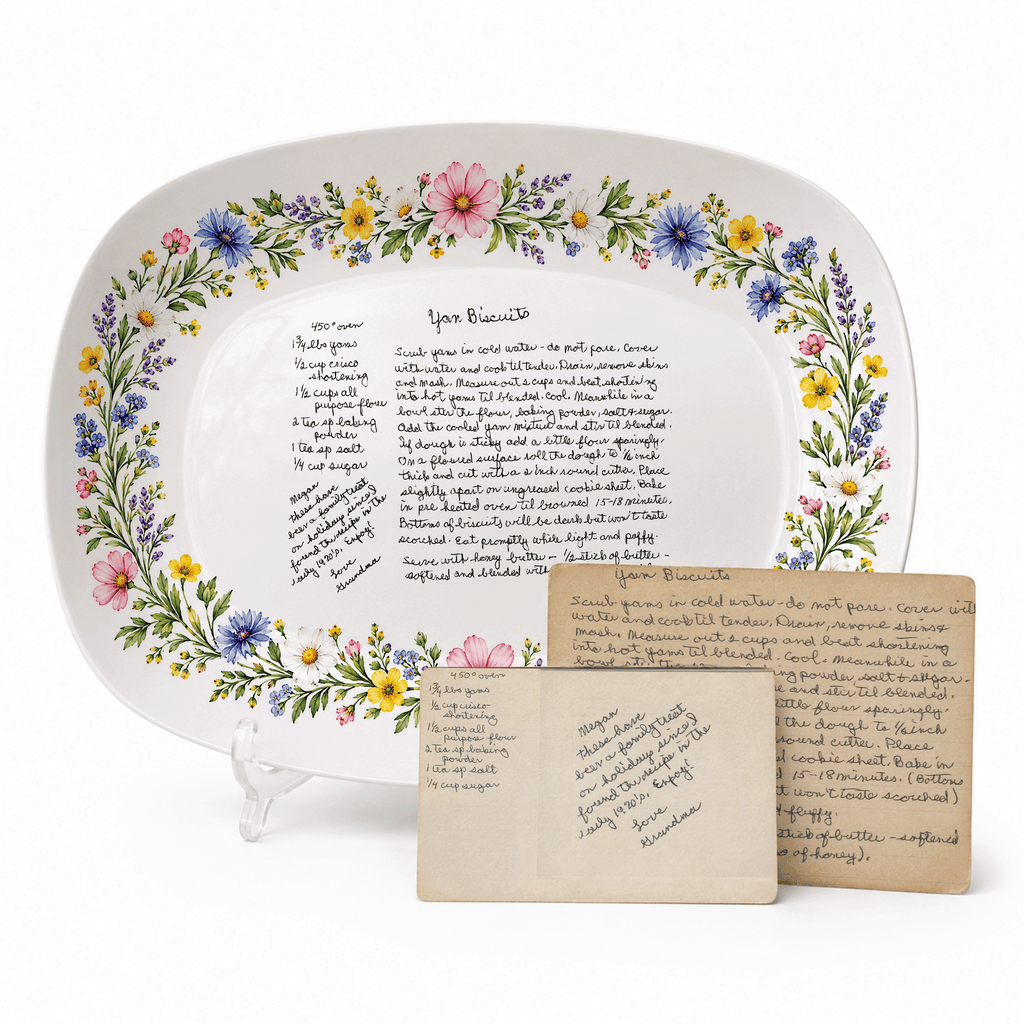 Yam Biscuits
450° oven
1 3/4 lbs yams
1/2 cup crisco
shortening
1 1/2 cups all
purpose flour
2 tea sp baking
powder
1 tea sp salt
1/4 cup sugar
Megan
these have
been a family treat
on holidays since I
found the recipe in the
early 1920's. Enjoy!
Love
Grandma
Scrub yams in cold water - do not pare. Cover
with water and cook til tender. Drain, remove skins
and mash. Measure out 2 cups and beat shortening
into hot yams til blended. Cool. Meanwhile in a
bowl stir the flour, baking powder, salt & sugar.
Add the cooled yam mixture and stir til blended.
If dough is sticky add a little flour sparingly.
On a floured surface roll the dough to 1/2 inch
thick and cut with a 2 inch round cutter. Place
slightly apart on ungreased cookie sheet. Bake
in pre heated oven til browned 15-18 minutes.
Bottoms of biscuits will be dark but won't taste
scorched. Eat promptly while light and puffy.
Serve with honey butter - 1/2 stick of butter -
softened and blended with
Yam Biscuits
Scrub yams in cold water - do not pare. Cover with
water and cook til tender. Drain, remove skins &
mash. Measure out 2 cups and beat shortening
into hot yams til blended. Cool. Meanwhile in a
bowl stir the
powder, salt & sugar.
and stir til blended.
little flour sparingly.
the dough to 1/2 inch
round cutter. Place
cookie sheet. Bake in
15-18 minutes. (Bottoms
won't taste scorched)
fluffy.
stick of butter - softened
of honey).
450° oven
1 3/4 lbs yams
1/2 cup crisco
shortening
1 1/2 cups all
purpose flour
2 tea sp baking
powder
1 tea sp salt
1/4 cup sugar
Megan
these have
been a family treat
on holidays since I
found the recipe in the
early 1920's. Enjoy!
Love
Grandma